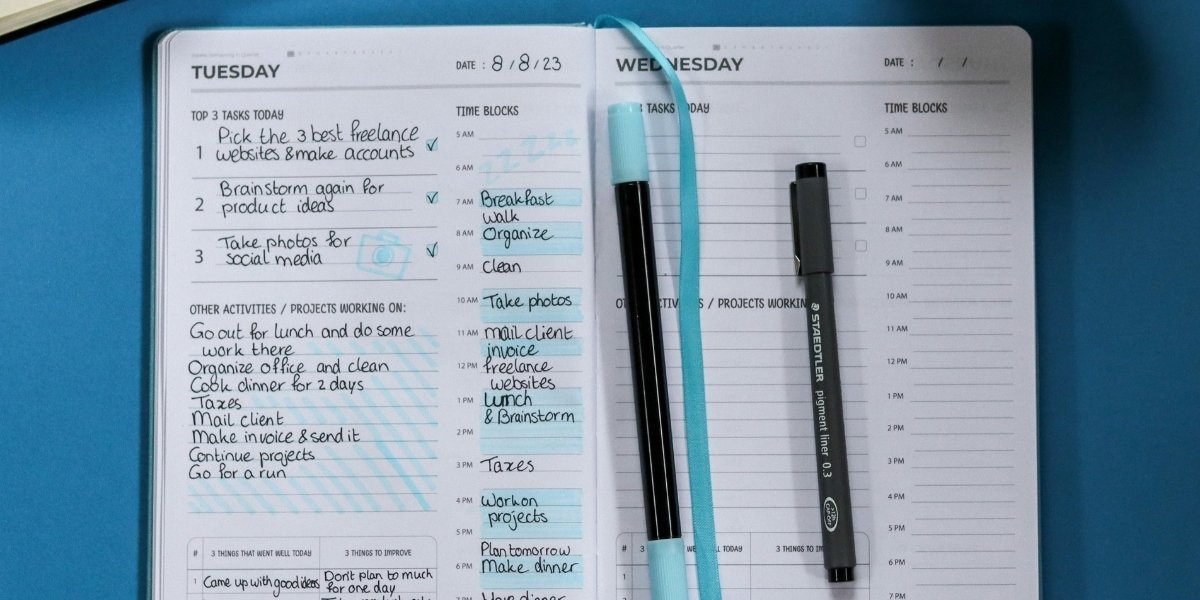 TUESDAY
DATE : 8/8/23
TOP 3 TASKS TODAY
1 Pick the 3 best freelance
websites & make accounts
2 Brainstorm again for
product ideas
3 Take photos for
social media
OTHER ACTIVITIES / PROJECTS WORKING ON:
Go out for lunch and do some
work there
Organize office and clean
Cook dinner for 2 days
Taxes
Mail client
Make invoice & send it
Continue projects
Go for a run
# 3 THINGS THAT WENT WELL TODAY 3 THINGS TO IMPROVE
1 Came up with good ideas Don't plan to much
for one day
TIME BLOCKS
5 AM zzzzz
6 AM
7 AM Breakfast
walk
8 AM Organize
9 AM Clean
10 AM Take photos
11 AM Mail client
invoice
12 PM freelance
websites
1 PM Lunch
& Brainstorm
2 PM
3 PM Taxes
4 PM Work on
projects
5 PM
Plan tomorrow
6 PM Make dinner
7 PM
WEDNESDAY
DATE : / /
TASKS TODAY
/ PROJECTS
# 3 WELL TODAY 3 THINGS TO
1
2
TIME BLOCKS
5 AM
6 AM
7 AM
8 AM
9 AM
10 AM
11 AM
12 PM
1 PM
2 PM
3 PM
4 PM
5 PM
6 PM
7 PM
STAEDTLER pigment liner 0.3